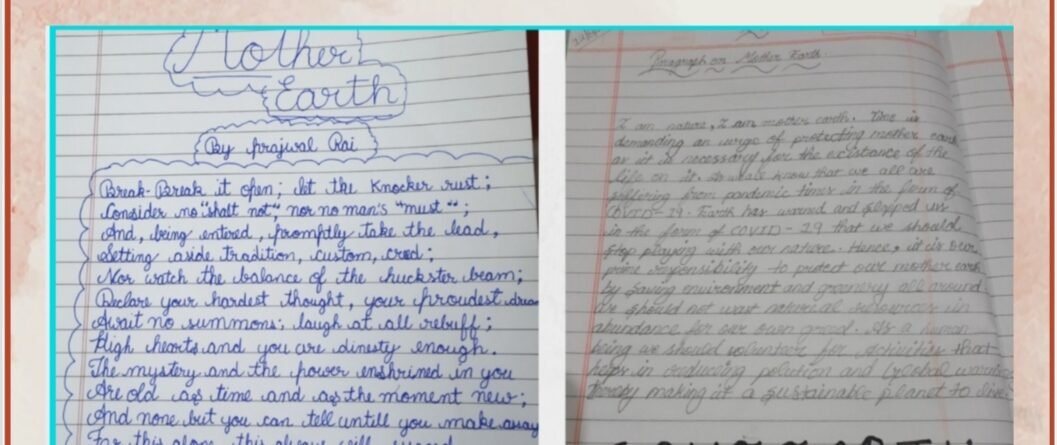 Mother
Earth
By Prajwal Rai
Break-Break it open; let the Knocker rust;
Consider no "shalt not", nor no man's "must";
And, being entered, promptly take the lead,
Setting aside tradition, custom, creed;
Nor watch the balance of the huckster beam;
Declare your hardest thought, your proudest dream
Await no summons; laugh at all rebuff;
High hearts and you are dinesty enough.
The mystery and the power enshrined in you
Are old as time and as the moment new;
And none but you can tell untill you make away
For this alone, this always will
Paragraph on Mother Earth
I am nature, I am mother earth. Time is
demanding an urge of protecting mother earth
as it is necessary for the existance of the
life on it. As we all know that we all are
suffering from pandemic times in the form of
COVID-19. Earth has warned and slapped us
in the form of COVID-19 that we should
stop playing with our nature. Hence, it is our
prime responsibility to protect our mother earth
by saving environment and greenery all around
we should not wast natural resources in
abundance for our own greed. As a human
being we should volunteer for activities that
helps in reducing polution and global warming
thereby making it a sustainable planet to live.